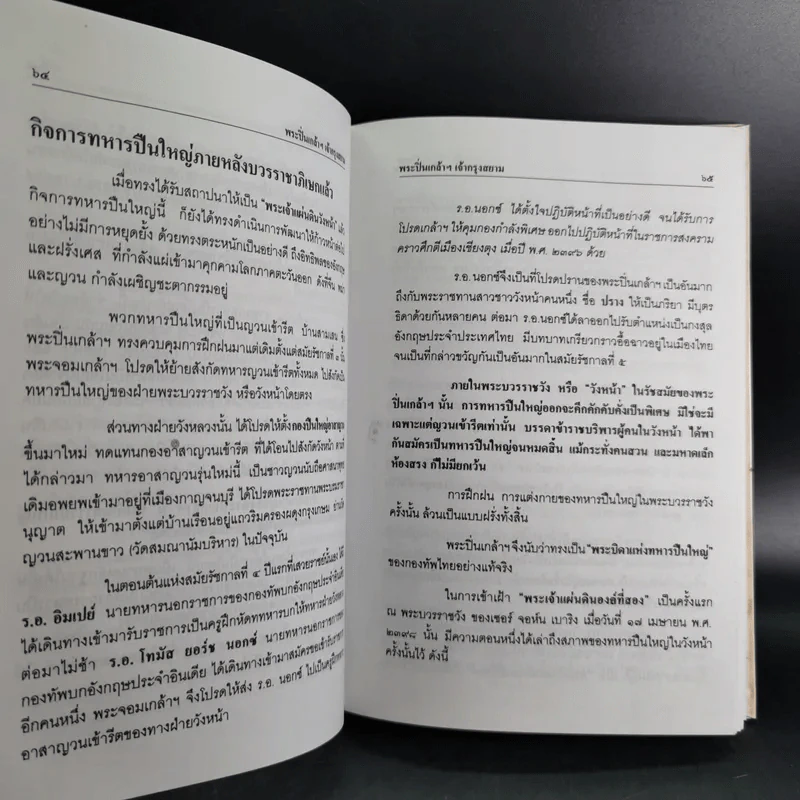 ๖๔
พระปิ่นเกล้าฯ เจ้ากรุงสยาม
กิจการทหารปืนใหญ่ภายหลังบวรราชาภิเษกแล้ว
เมื่อทรงได้รับสถาปนาให้เป็น "พระเจ้าแผ่นดินวังหน้า" แล้ว
กิจการทหารปืนใหญ่นี้ ก็ยังได้ทรงดำเนินการพัฒนาให้ก้าวหน้าต่อไป
อย่างไม่มีการหยุดยั้ง ด้วยทรงตระหนักเป็นอย่างดี ถึงอิทธิพลของอังกฤษ
และฝรั่งเศส ที่กำลังแผ่เข้ามาคุกคามโลกภาคตะวันออก ดังที่จีน พม่า
และญวน กำลังเผชิญชะตากรรมอยู่
พวกทหารปืนใหญ่ที่เป็นญวนเข้ารีต บ้านสามเสน ซึ่ง
พระปิ่นเกล้าฯ ทรงควบคุมการฝึกฝนมาแต่เดิมตั้งแต่สมัยรัชกาลที่ ๓ นั้น
พระจอมเกล้าฯ โปรดให้ย้ายสังกัดทหารญวนเข้ารีตทั้งหมด ไปสังกัดเป็น
ทหารปืนใหญ่ของฝ่ายพระบวรราชวัง หรือวังหน้าโดยตรง
ส่วนทางฝ่ายวังหลวงนั้น ได้โปรดให้ตั้งกองปืนใหญ่อาสาญวน
ขึ้นมาใหม่ ทดแทนกองอาสาญวนเข้ารีต ที่ได้โอนไปสังกัดวังหน้า ตามที่
ได้กล่าวมา ทหารอาสาญวนรุ่นใหม่นี้ เป็นชาวญวนนับถือศาสนาพุทธ
เดิมอพยพเข้ามาอยู่ที่เมืองกาญจนบุรี ได้โปรดพระราชทานพระบรมราชา
นุญาต ให้เข้ามาตั้งแต่บ้านเรือนอยู่แถวริมครองผดุงกรุงเกษม ย่าน
ญวนสะพานขาว (วัดสมณานัมบริหาร) ในปัจจุบัน
ในตอนต้นแห่งสมัยรัชกาลที่ ๔ ปีแรกที่เสวยราชย์นั้นเอง ได้มี
ร.อ. อิมเปย์ นายทหารนอกราชการของกองทัพบกอังกฤษประจำอินเดีย
ได้เดินทางเข้ามารับราชการเป็นครูฝึกหัดทหารบกให้ทหารฝ่ายวังหลวง
ต่อมาไม่ช้า ร.อ. โทมัส ยอร์ช นอกซ์ นายทหารนอกราชการของ
กองทัพบกอังกฤษประจำอินเดีย ได้เดินทางเข้ามาสมัครขอเข้ารับราชการ
อีกคนหนึ่ง พระจอมเกล้าฯ จึงโปรดให้ส่ง ร.อ. นอกซ์ ไปเป็นครูฝึกทหาร
อาสาญวนเข้ารีตของทางฝ่ายวังหน้า
พระปิ่นเกล้าฯ เจ้ากรุงสยาม
๖๕
ร.อ.นอกซ์ ได้ตั้งใจปฏิบัติหน้าที่เป็นอย่างดี จนได้รับการ
โปรดเกล้าฯ ให้คุมกองกำลังพิเศษ ออกไปปฏิบัติหน้าที่ในราชการสงคราม
คราวศึกตีเมืองเชียงตุง เมื่อปี พ.ศ. ๒๓๙๖ ด้วย
ร.อ.นอกซ์จึงเป็นที่โปรดปรานของพระปิ่นเกล้าฯ เป็นอันมาก
ถึงกับพระราชทานสาวชาววังหน้าคนหนึ่ง ชื่อ ปราง ให้เป็นภริยา มีบุตร
ธิดาด้วยกันหลายคน ต่อมา ร.อ.นอกซ์ได้ลาออกไปรับตำแหน่งเป็นกงสุล
อังกฤษประจำประเทศไทย มีบทบาทเกรียวกราวอื้อฉาวอยู่ในเมืองไทย
จนเป็นที่กล่าวขวัญกันเป็นอันมากในสมัยรัชกาลที่ ๕
ภายในพระบวรราชวัง หรือ "วังหน้า" ในรัชสมัยของพระ
ปิ่นเกล้าฯ นั้น การทหารปืนใหญ่ออกจะคึกคักคับคั่งเป็นพิเศษ มิใช่จะมี
เฉพาะแต่ญวนเข้ารีตเท่านั้น บรรดาข้าราชบริพารผู้คนในวังหน้า ได้พา
กันสมัครเป็นทหารปืนใหญ่จนหมดสิ้น แม้กระทั่งคนสวน และมหาดเล็ก
ห้องสรง ก็ไม่มียกเว้น
การฝึกฝน การแต่งกายของทหารปืนใหญ่ในพระบวรราชวัง
ครั้งนั้น ล้วนเป็นแบบฝรั่งทั้งสิ้น
พระปิ่นเกล้าฯ จึงนับว่าทรงเป็น "พระบิดาแห่งทหารปืนใหญ่"
ของกองทัพไทยอย่างแท้จริง
ในการเข้าเฝ้า "พระเจ้าแผ่นดินองค์ที่สอง" เป็นครั้งแรก
ณ พระบวรราชวัง ของเซอร์ จอห์น เบาริง เมื่อวันที่ ๑๗ เมษายน พ.ศ.
๒๓๙๘ นั้น มีความตอนหนึ่งได้เล่าถึงสภาพของทหารปืนใหญ่ในวังหน้า
ครั้งนั้นไว้ ดังนี้